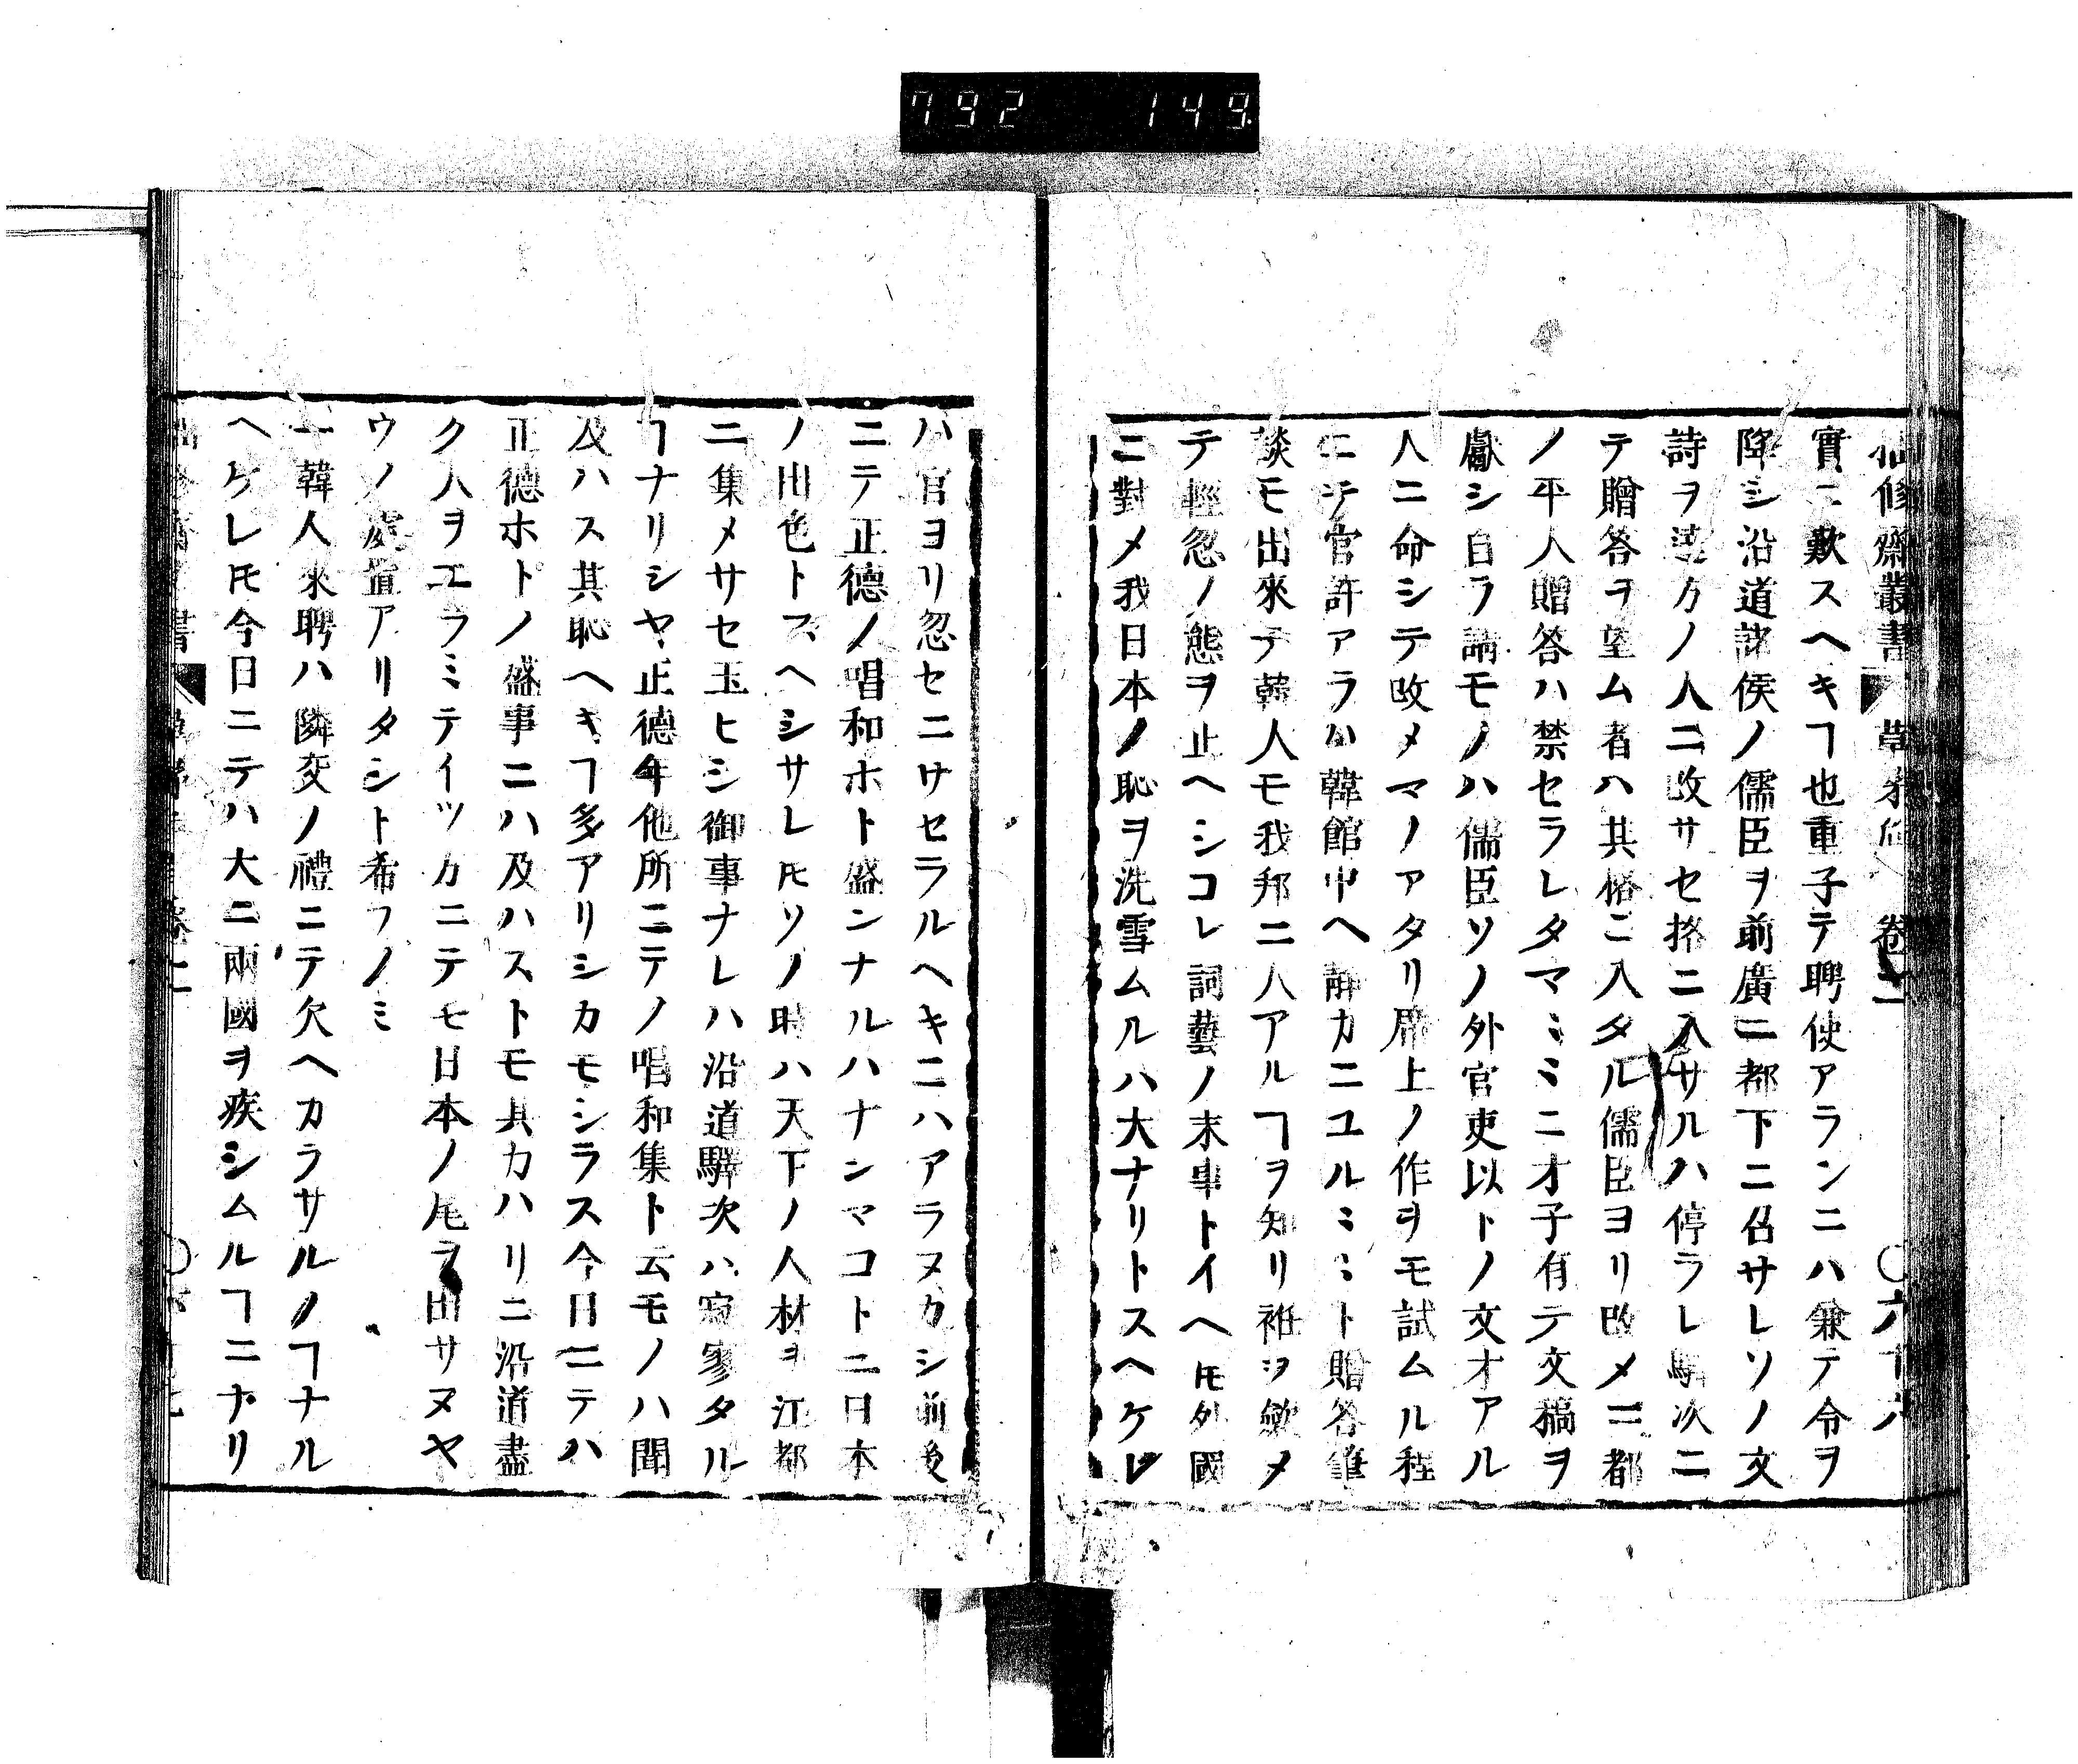 792 149
修齋叢書 草茅危 卷 〇六十六
實ニ歎スヘキヿ也重子テ聘使アランニハ兼テ令ヲ
降シ沿道諸侯ノ儒臣ヲ前廣ニ都下ニ召サレソノ文
詩ヲ達カノ人ニ改サセ挌ニ入サルハ停ラレ驛次ニ
テ贈答ヲ望ム者ハ其格ニ入タル儒臣ヨリ改メ三都
ノ平人贈答ハ禁セラレタマミミニオ子有テ文稿ヲ
獻シ自ラ請モノハ儒臣ソノ外官吏以トノ文才アル
人ニ命シテ改メマノアタリ席上ノ作ヲモ試ムル程
ニテ官許アラハ韓館中ヘ静カニユルミミト贈答筆
談モ出來テ韓人モ我邦ニ人アルヿヲ知リ袵ヲ斂メ
テ輕忽ノ態ヲ止ヘシコレ詞藝ノ末事トイヘ𪜈外國
ニ對メ我日本ノ恥ヲ洗雪ムルハ大ナリトスヘケレ
ハ官ヨリ忽セニサセラルヘキニハアラヌカシ前後
ニテ正德ノ唱和ホト盛ンナルハナンマコトニ日本
ノ出色トスヘシサレ𪜈ソノ時ハ天下ノ人材ヲ江都
ニ集メサセ玉ヒシ御事ナレハ沿道驛次ハ寂寥タル
ヿナリシヤ正德年他所ニテノ唱和集ト云モノハ聞
及ハス其恥ヘキヿ多アリシカモシラス今日ニテハ
正德ホトノ盛事ニハ及ハストモ其カハリニ沿道盡
ク人ヲエラミテイツカニテモ日本ノ尾ヲ出サヌヤ
ウノ處置アリタシト希フノミ
一韓人來聘ハ隣交ノ禮ニテ欠ヘカラサルノヿナル
ヘケレ𪜈今日ニテハ大ニ兩國ヲ疾シムルヿニナリ